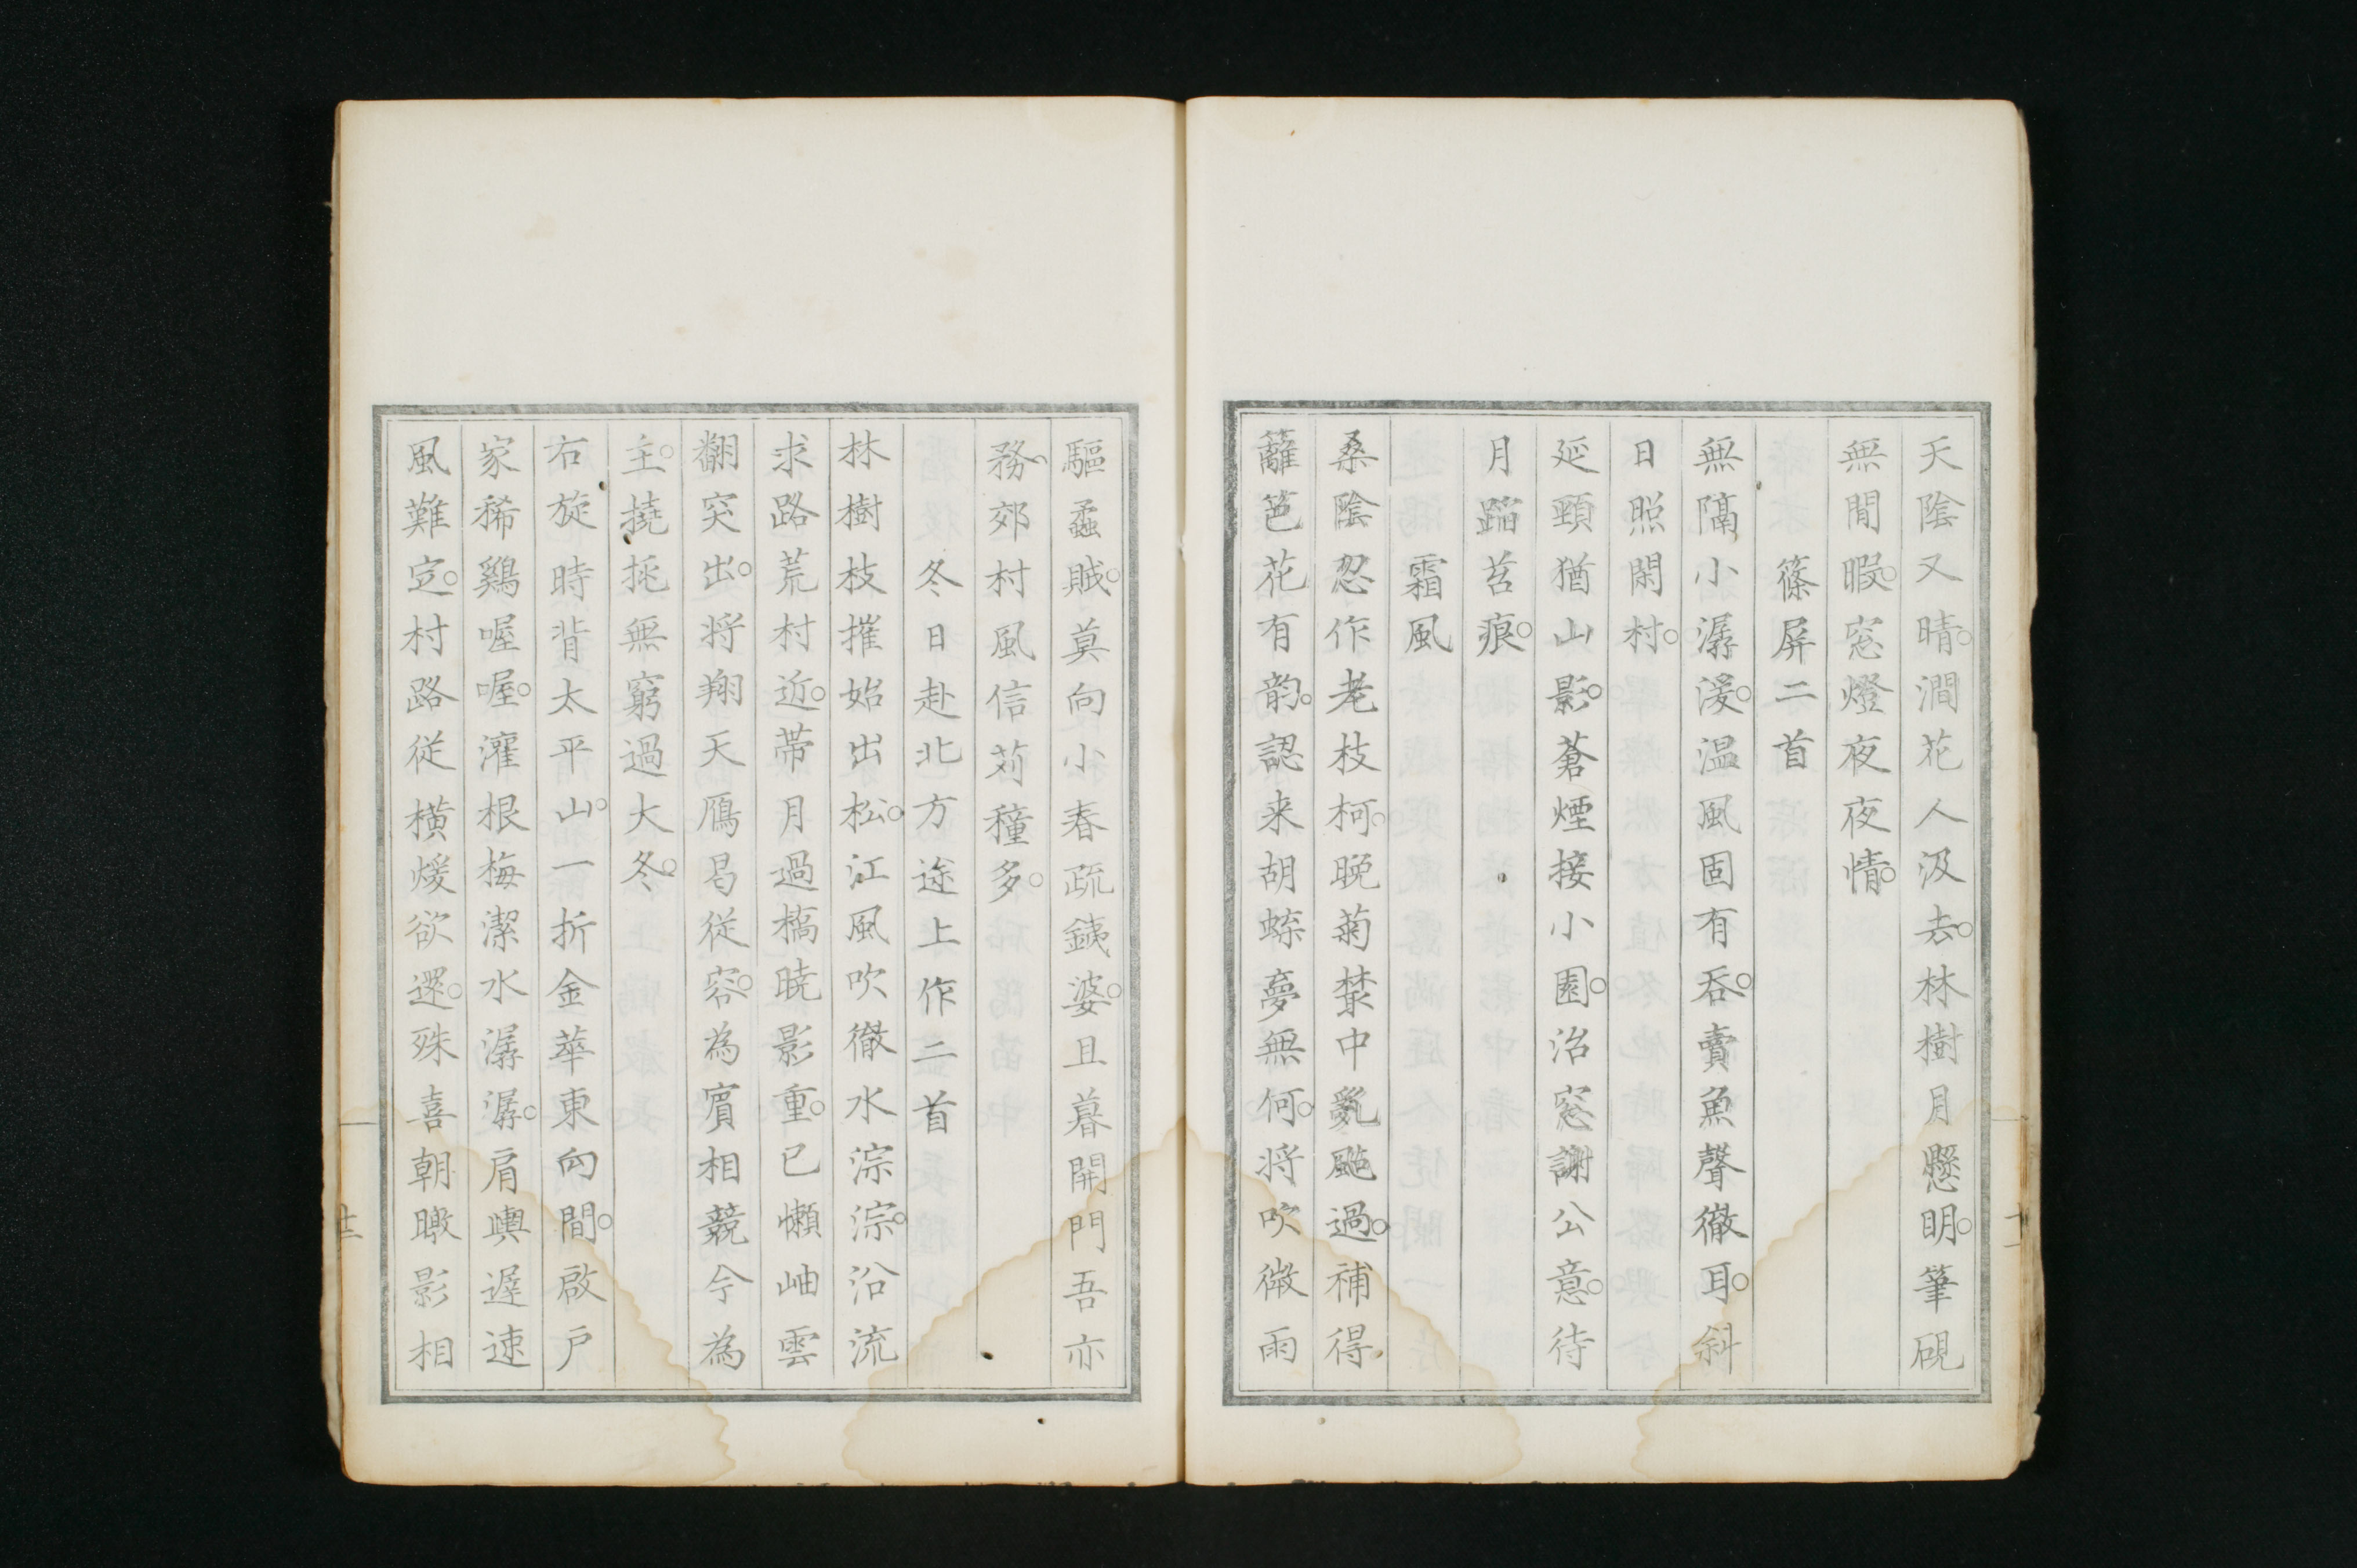 天陰又晴。澗花人汲去。林樹月懸明。筆硯
無閒暇。窓燈夜夜情。
篠屏二首
無隔小潺湲。温風固有呑。賣魚聲徹耳。斜
日照閑村。
延頸猶山影。蒼煙接小園。治窓謝公意。待
月蹈苔痕。
霜風
桑陰忍作老枝柯。晩菊叢中亂颭過。補得
籬笆花有韵。認来胡蝶夢無何。将吹微雨
驅蟊賊。莫向小春疏銕婆。且暮開門吾亦
務。郊村風信苅穜多。
冬日赴北方途上作二首
林樹枝摧始出松。江風吹徹水淙淙。沿流
求路荒村近。帯月過橋暁影重。已懶岫雲
翻突出。将翔天鴈曷従容。為賓相競今為
主。撓挀無窮過大冬。
右旋時背太平山。一折金華東向間。啟戸
家稀鷄喔喔。灌根梅潔水潺潺。肩輿遅速
風難定。村路従横煖欲還。殊喜朝暾影相
十二